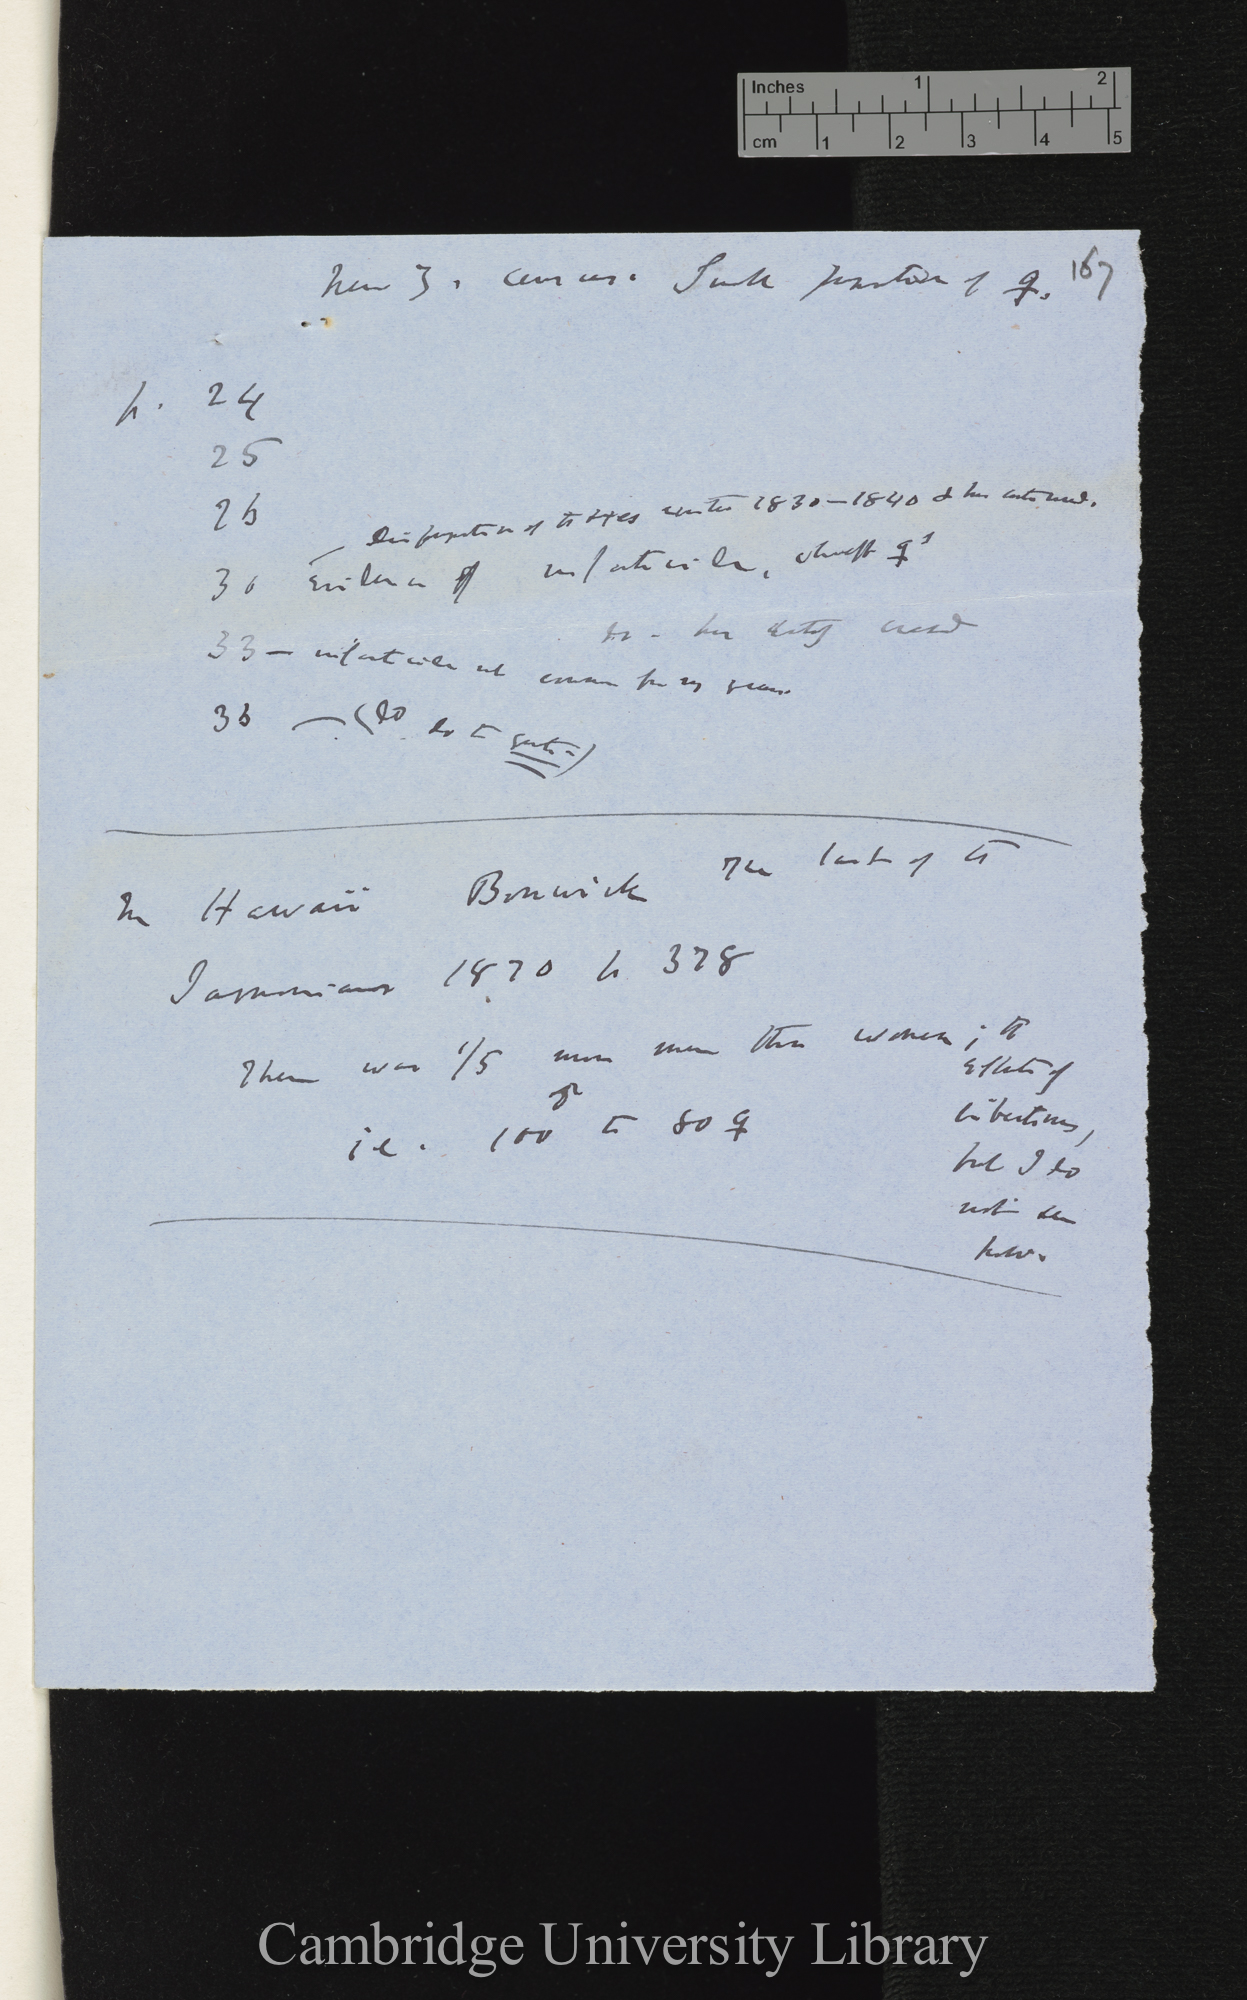 Inches 1 2
cm 1 2 3 4 5
167
New Z. census. Small proportion of ♀.
p. 24
25
26
Disproportion of the sexes 1830–1840 & has
30 Evidence of infanticide, chiefly ♀s
do –
33 – infanticide not common for years
36 — (do do)
In Hawaii Bonwick The last of the
Tasmanians 1870 p 378
There was 1/5 more men than women; the
effects of
libertines,
but I do
not see
how.
i.e. 100 ♂ to 80 ♀
Cambridge University Library